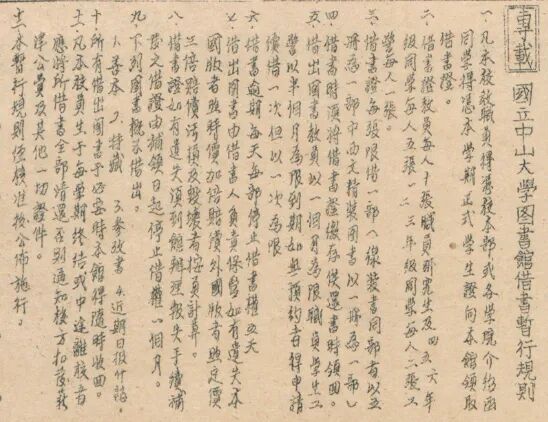 專載
國立中山大學图書館借書暫行規則
一、凡本校教職員得憑校本部或各學院介紹函
同學得憑本學期正式學生證向本館領取
借書證。
二、借書證教員每人十張職員研究生及四五六年
級同學每人五張一二三年級同學每人三張工
警每人一張。
三、借書證每張限借一部（線裝書同部者以五
冊為一部中西文精裝圖書以一冊為一部）
四、借書時須將借書證繳存俟還書時領回。
五、借出圖書教員以一個月為限職員學生工
警以半個月為限到期如無預約者得申請
續借一次但以一次為限
六、借書逾期每天每部停止借書權五天
七、借出圖書由借書人負責保管如有遺失本
國版者照時價加倍賠償外國版者照定價
三倍賠償污損及毀壞者按頁計算。
八、借書證如有遺失須到館辦理报失手續補
發文借證由補領日起停止借權一個月。
九、下列圖書概不借出。
1.善本 2.特藏 3.參攷書 4.近期日报什誌。
十、所有借出圖書于必要時本館得隨時收回。
十一、凡本校員生于每學期終结或中途離校者
應將所借書全部清還否則通知校方扣發薪
津公費及其他一切證件。
十二、本暫行規則经校准後公佈施行。